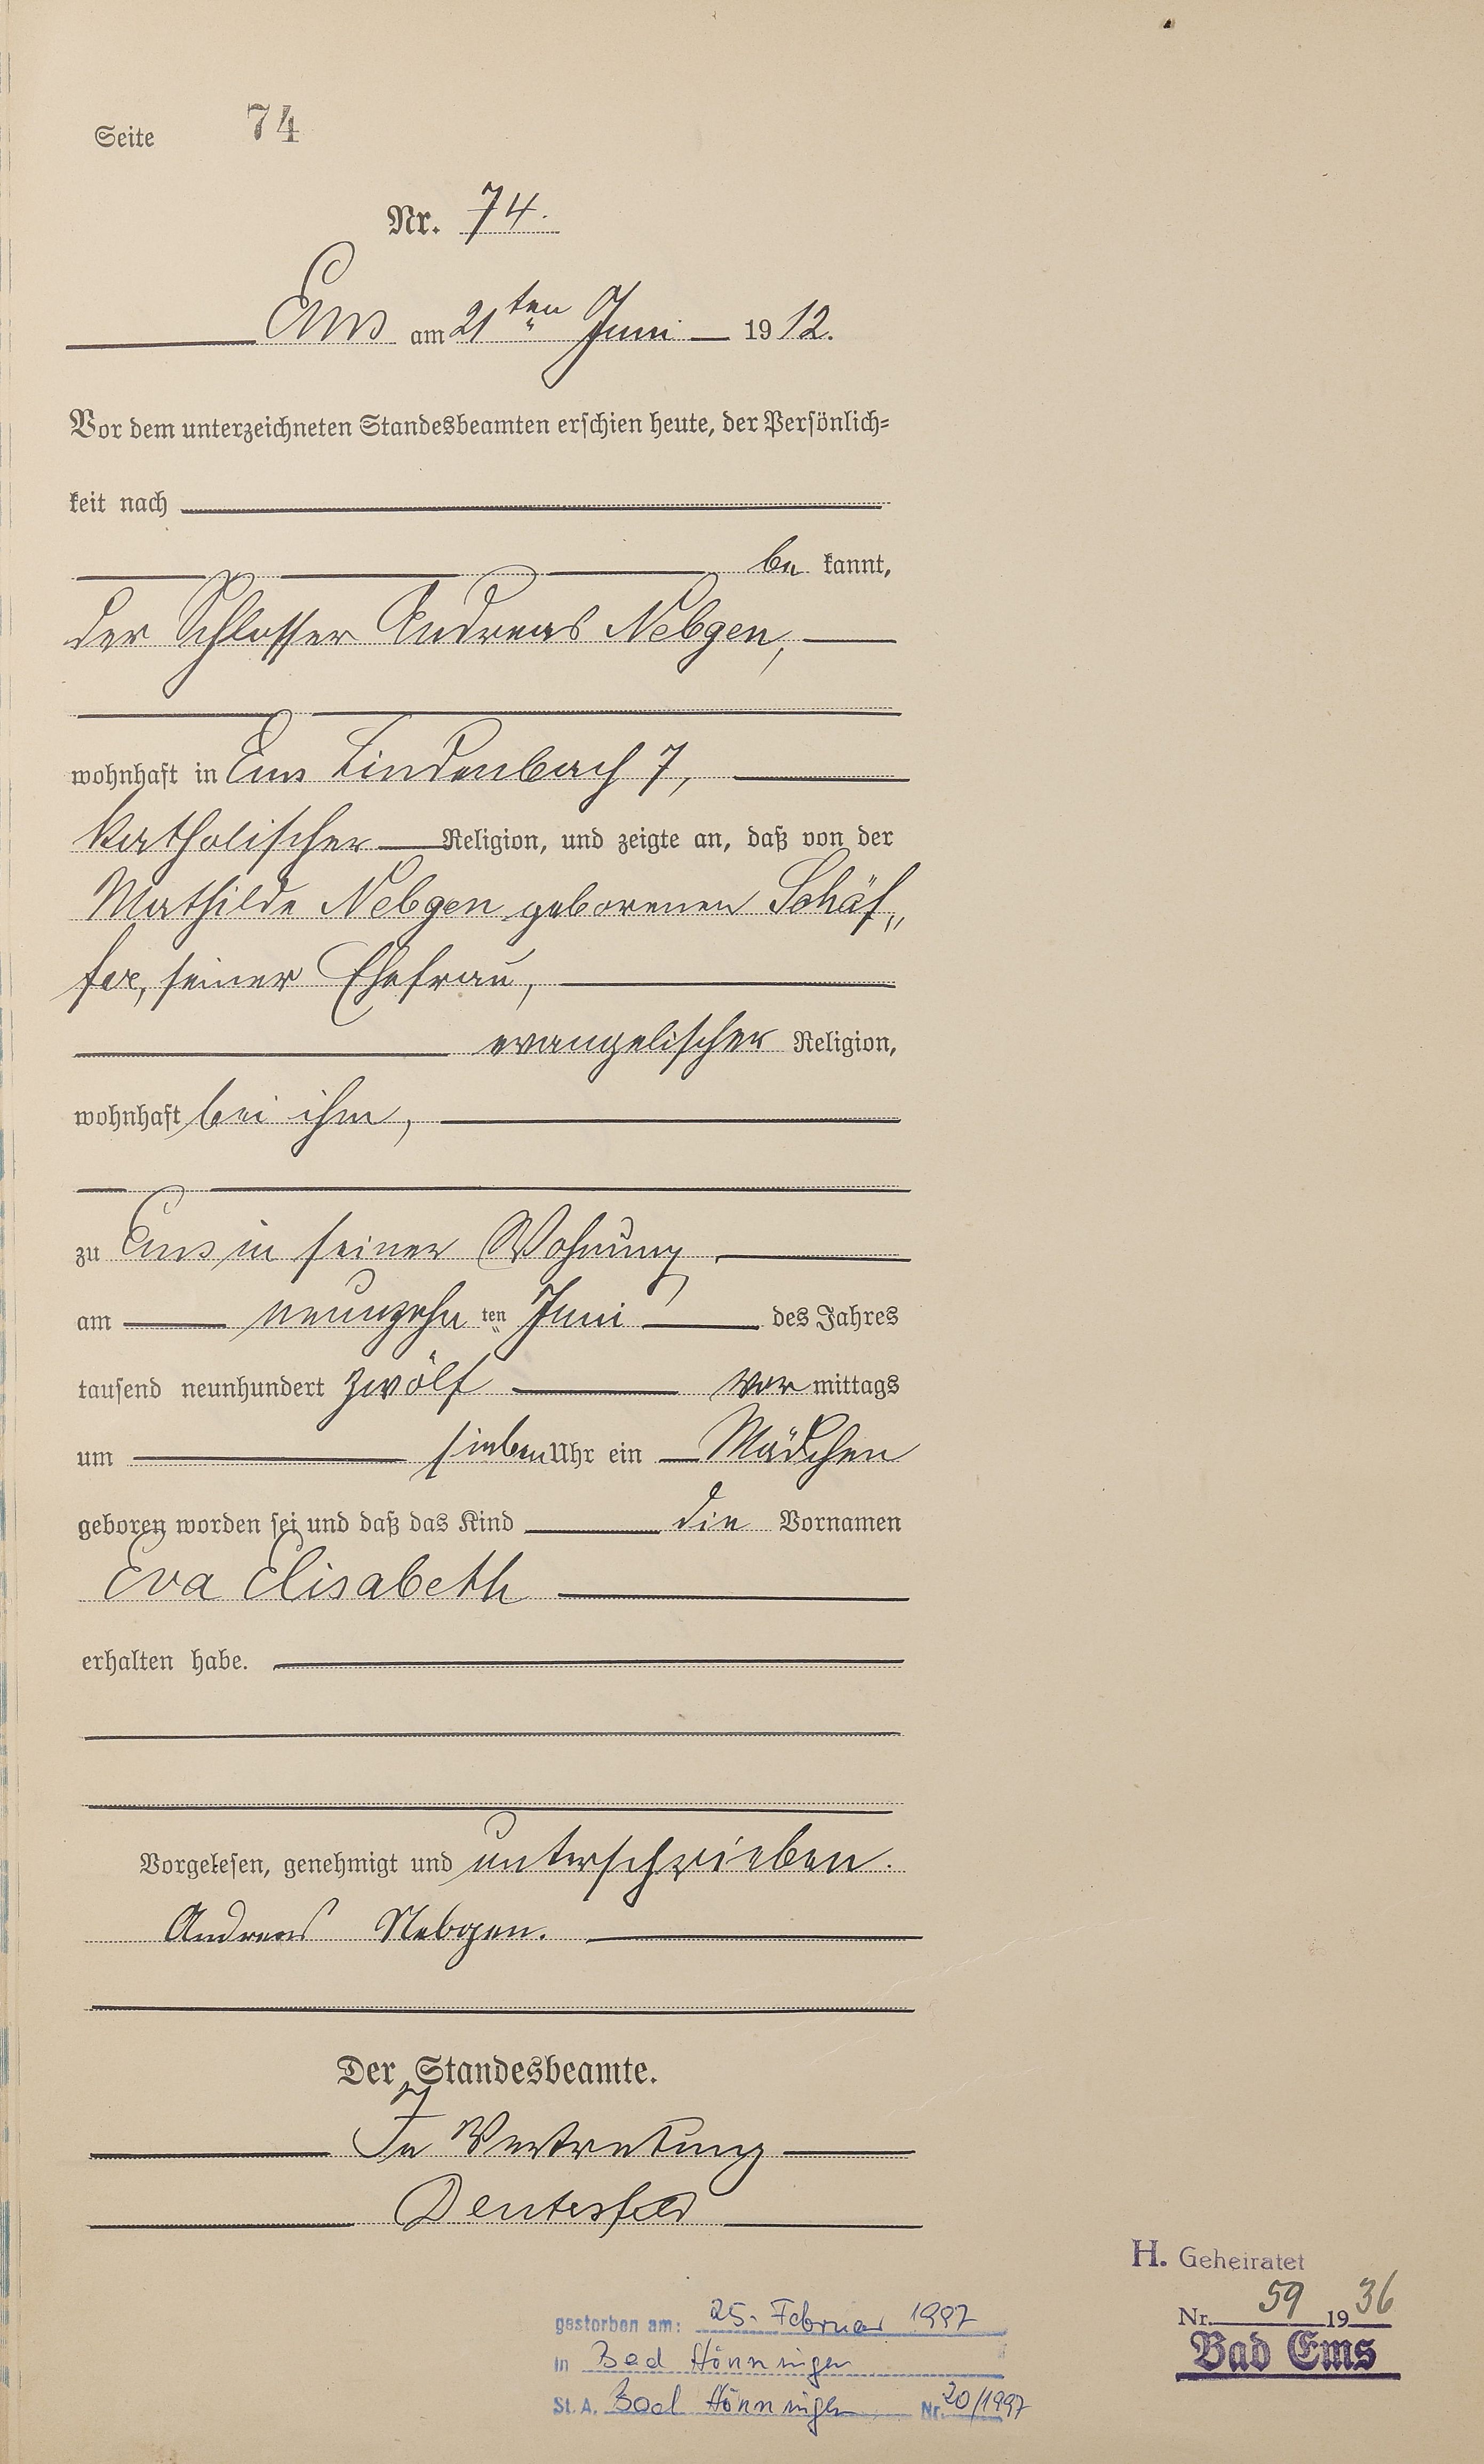 Seite 74
Nr. 74.
Ems am 21ten Juni 1912.
Vor dem unterzeichneten Standesbeamten erschien heute, der Persönlich=
keit nach
be kannt,
der Schlosser Andreas Nebgen,
wohnhaft in Ems Lindenbach 7,
katholischer Religion, und zeigte an, daß von der
Mathilde Nebgen geborenen Schäf„
fer, seiner Ehefrau,
evangelischer Religion,
wohnhaft bei ihm,
zu Ems in seiner Wohnung,
am neunzehn ten Juni des Jahres
tausend neunhundert zwölf vor mittags
um sieben Uhr ein Mädchen
geboren worden sei und daß das Kind die Vornamen
Eva Elisabeth
erhalten habe.
Vorgelesen, genehmigt und unterschrieben.
Andreas Nebgen.
Der Standesbeamte.
In Vertretung
H. Geheiratet
Nr. 59 1936
Bad Ems
gestorben am: 25. Februar 1997
in Bad Hönningen
St. A. Bad Hönningen Nr. 20/1997